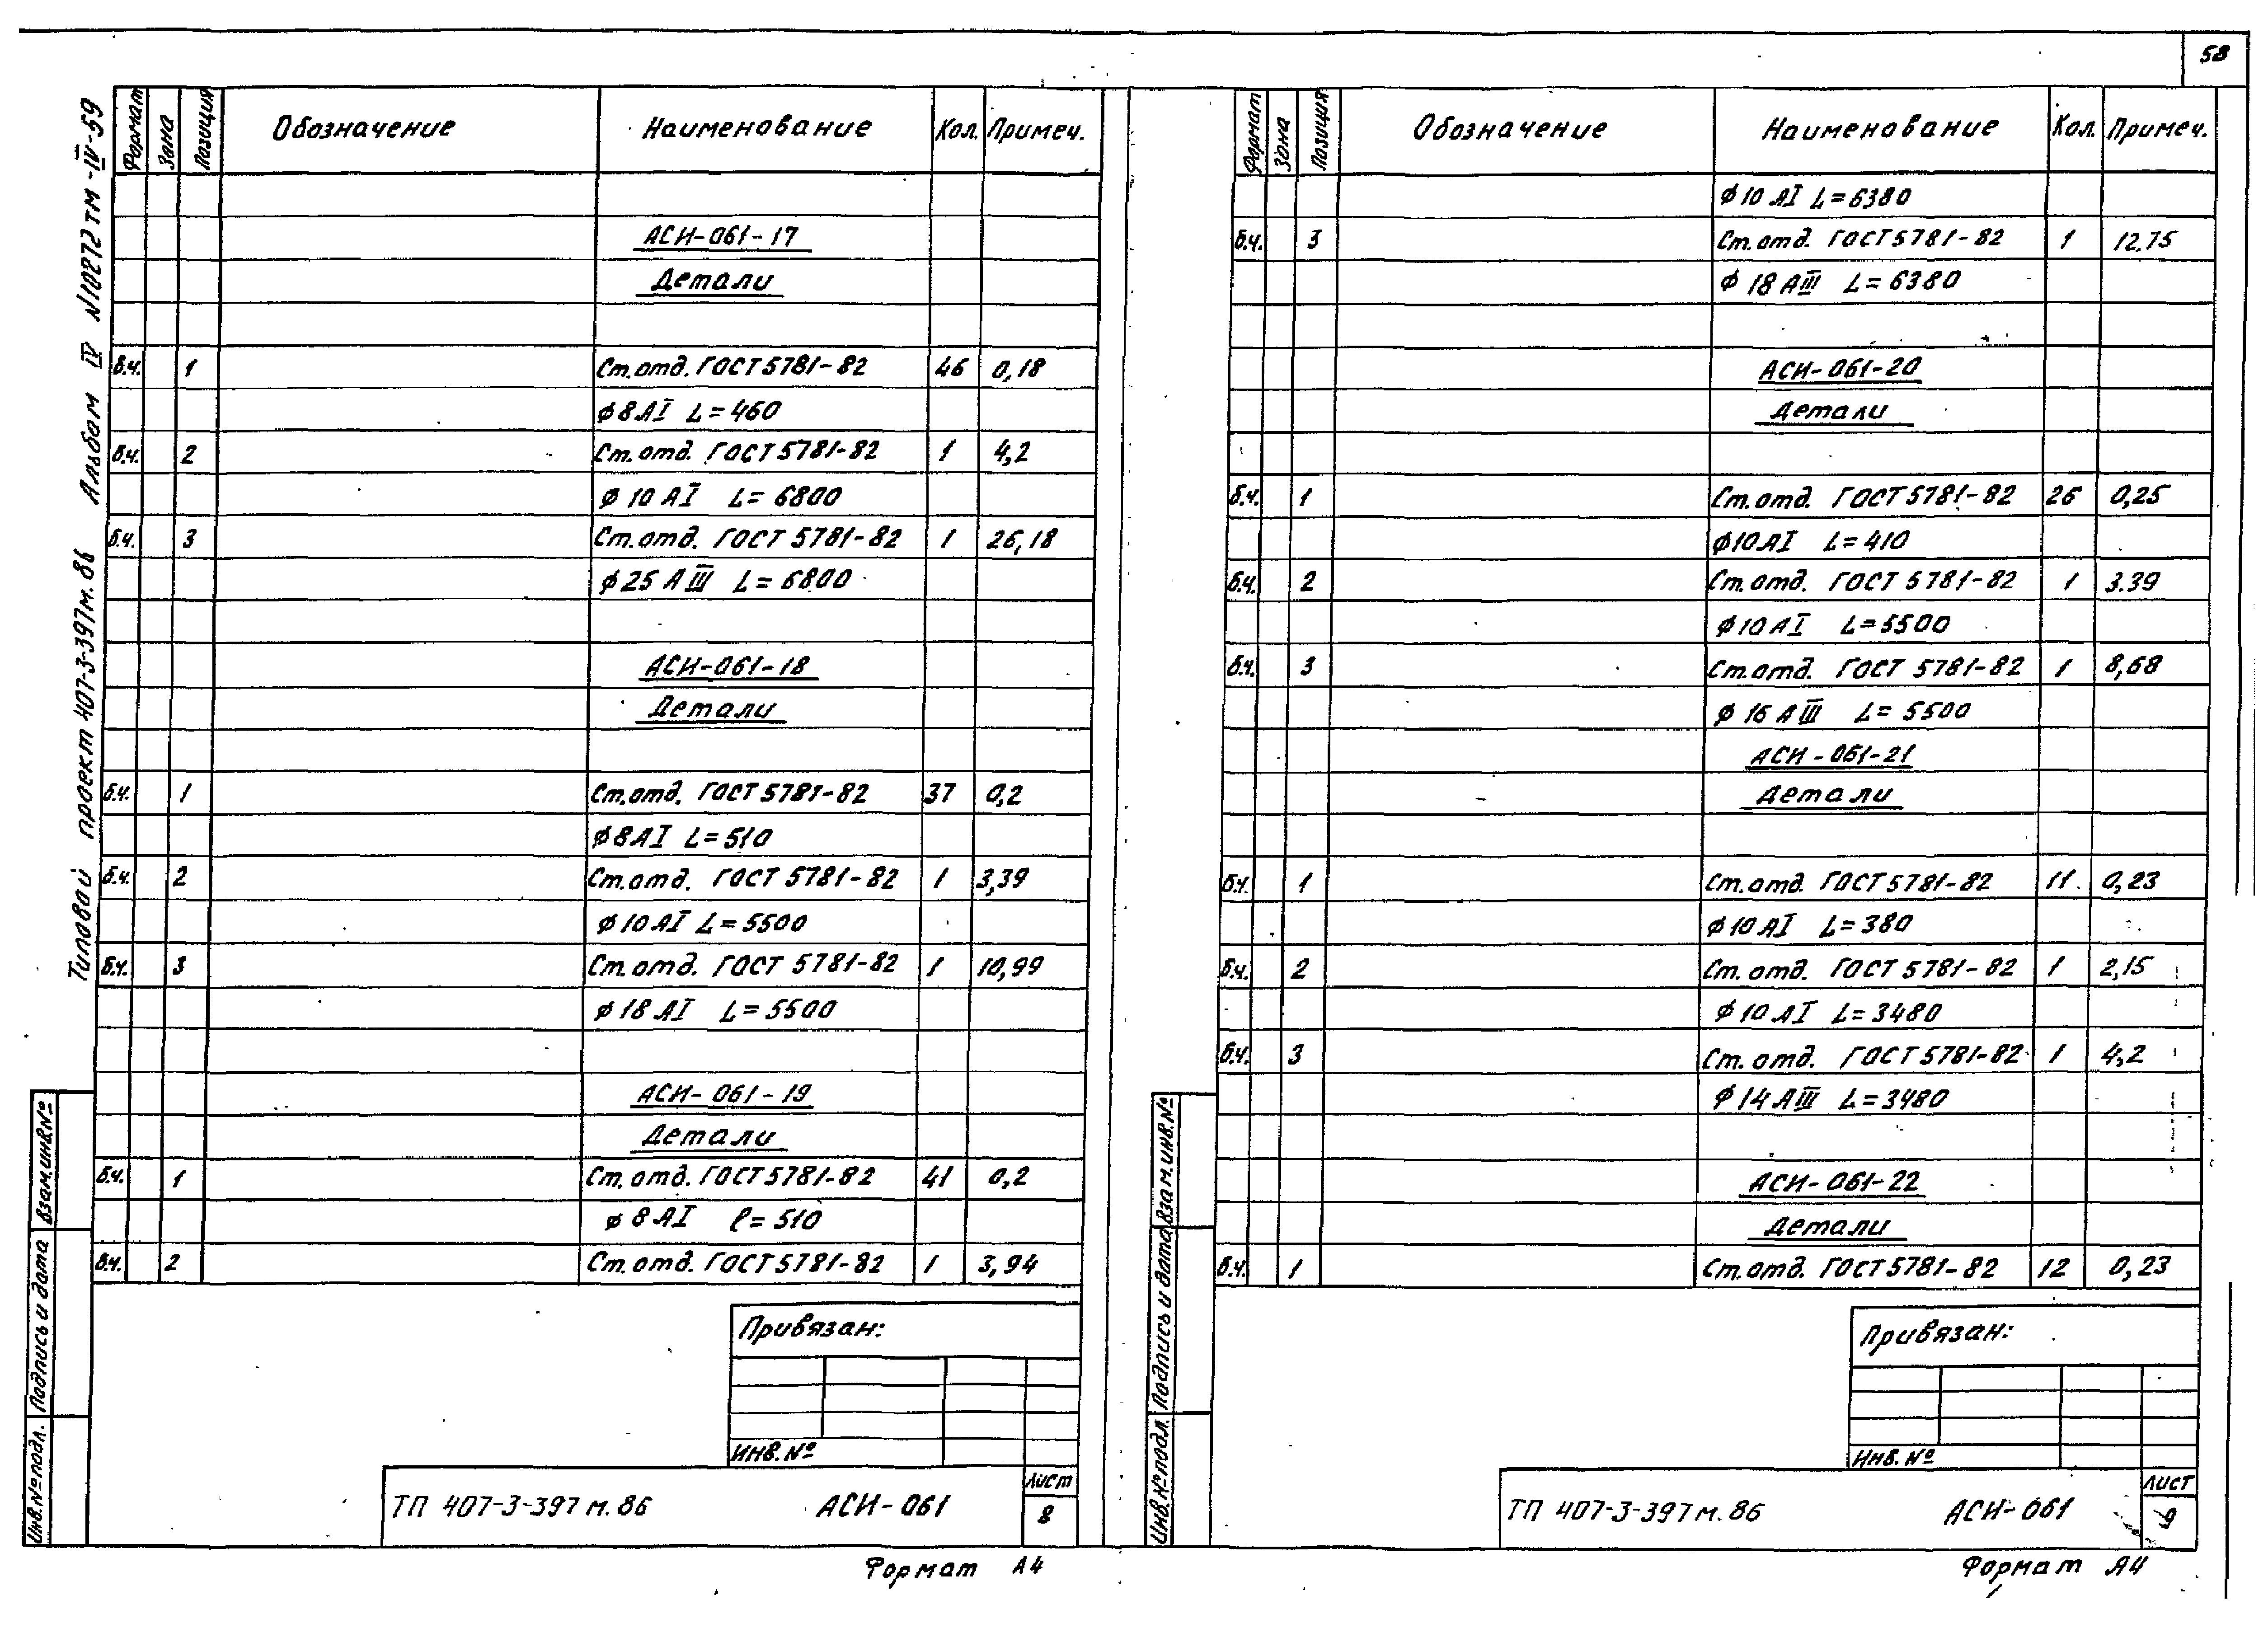 58
Типовой проект 407-3-397м.86 Альбом IV N10272тм-IV-59
Формат Зона Позиция Обозначение Наименование Кол. Примеч.
АСИ-061-17
Детали
б.ч. 1 Ст.отд. ГОСТ 5781-82 46 0,18
φ8АI L=460
б.ч. 2 Ст.отд. ГОСТ 5781-82 1 4,2
φ10АI L=6800
б.ч. 3 Ст.отд. ГОСТ 5781-82 1 26,18
φ25АIII L=6800
АСИ-061-18
Детали
б.ч. 1 Ст.отд. ГОСТ 5781-82 37 0,2
φ8АI L=510
б.ч. 2 Ст.отд. ГОСТ 5781-82 1 3,39
φ10АI L=5500
б.ч. 3 Ст.отд. ГОСТ 5781-82 1 10,99
φ18АI L=5500
АСИ-061-19
Детали
б.ч. 1 Ст.отд. ГОСТ 5781-82 41 0,2
φ8АI ℓ=510
б.ч. 2 Ст.отд. ГОСТ 5781-82 1 3,94
Привязан:
Инв.№
ТП 407-3-397м.86 АСИ-061
Лист
8
Инв.№подл. Подпись и дата Взам.инв.№
Формат А4
Формат Зона Позиция Обозначение Наименование Кол. Примеч.
φ10АI L=6380
б.ч. 3 Ст.отд. ГОСТ 5781-82 1 12.75
φ18АIII L=6380
АСИ-061-20
Детали
б.ч. 1 Ст.отд. ГОСТ 5781-82 26 0,25
φ10АI L=410
б.ч. 2 Ст.отд. ГОСТ 5781-82 1 3.39
φ10АI L=5500
б.ч. 3 Ст.отд. ГОСТ 5781-82 1 8,68
φ16АIII L=5500
АСИ-061-21
Детали
б.ч. 1 Ст.отд. ГОСТ 5781-82 11 0,23
φ10АI L=380
б.ч. 2 Ст.отд. ГОСТ 5781-82 1 2,15
φ10АI L=3480
б.ч. 3 Ст.отд. ГОСТ 5781-82 1 4,2
φ14АIII L=3480
АСИ-061-22
Детали
б.ч. 1 Ст.отд. ГОСТ 5781-82 12 0,23
Привязан:
Инв.№
ТП 407-3-397м.86 АСИ-061
Лист
9
Инв.№подл. Подпись и дата Взам.инв.№
Формат А4